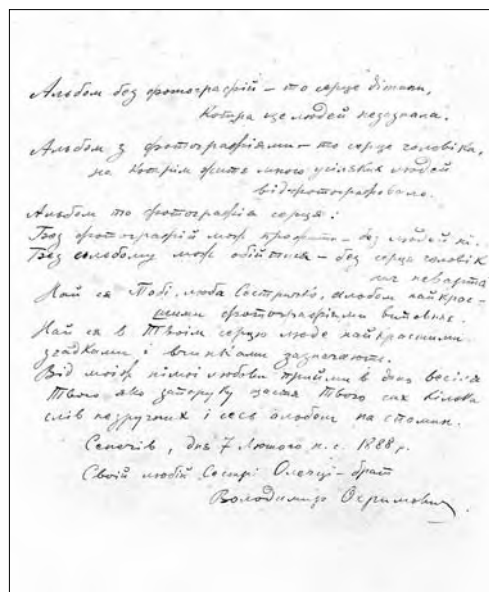 Альбом без фотографій – то серце дітини,
Котра ще людей незазнала.
Альбом з фотографіями – то серце чоловіка,
на котрім житє много усіляких людей
відфотографовало.
Альбом то фотографія серця:
Без фотографій мож прожити – без людей ні..
Без альбому мож обійтися – без серця чоловік
нич неварта
Най ся Тобі, люба Сестричко, альбом найкрас-
шими фотографіями виповнює.
Най ся в Твоїм серцю люде найкрасшими
згадками і вчинками зазначають.
Від моїй німої любови прийми в день весіля
Твого яко запоруку щастя Твого сих кілька
слів незручних і сесь альбом на спомин.
Сенечів, дня 7 Лютого н. с. 1888 р.
Своїй любій Сестрі Олесці – брат
Володимир Охримович